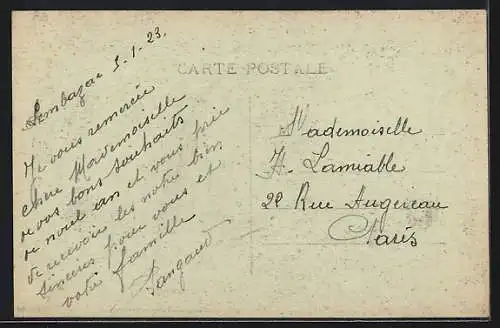 Lembazac 5-1-23.
CARTE POSTALE
Je vous remercie
chère Mademoiselle
de vos bons souhaits
de nouvel an et vous prie
de recevoir les notre bien
sincères pour vous et
votre famille
Mademoiselle
H. Lamiable
22 Rue Augereau
Paris